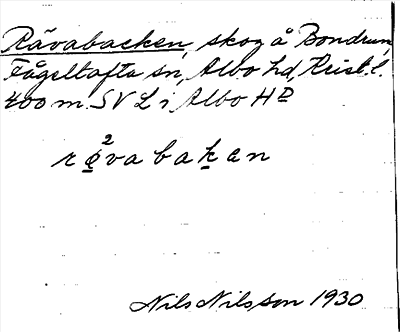 Rävabacken, skog å Bondrum,
Fågeltofta sn, Albo hd, Krist. l.
400 m. SV L i Albo HD
rø²vabak̲an
Nils Nilsson 1930